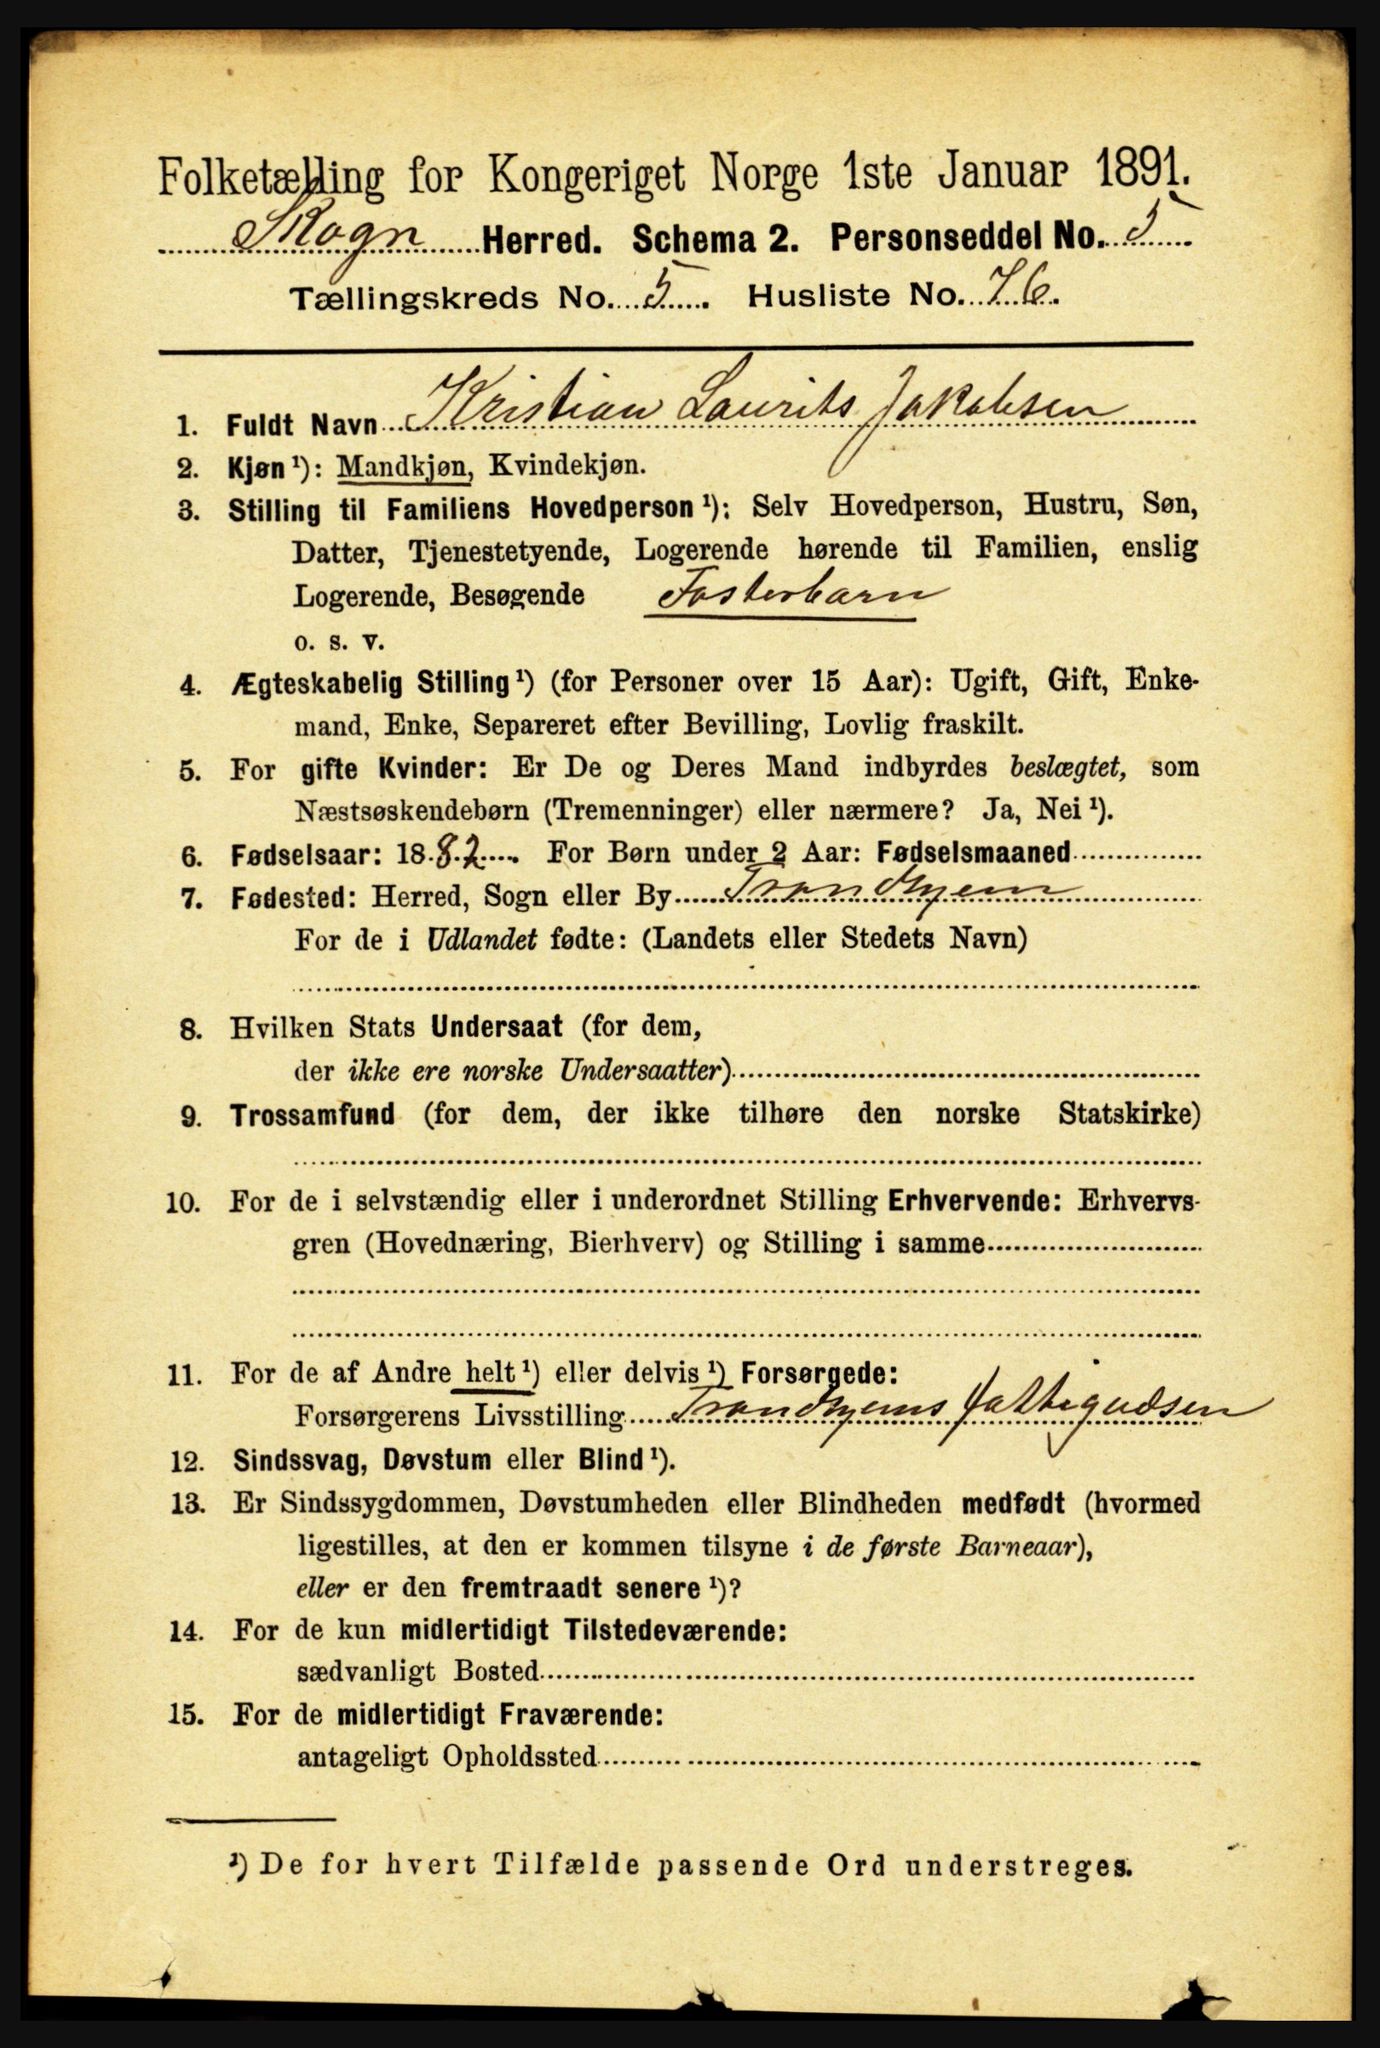 Folketælling for Kongeriget Norge 1ste Januar 1891.
Skogn Herred. Schema 2. Personseddel No. 5
Tællingskreds No. 5. Husliste No. 76.
1. Fuldt Navn Kristian Laurits Jakobsen
2. Kjøn ¹): Mandkjøn, Kvindekjøn.
3. Stilling til Familiens Hovedperson ¹): Selv Hovedperson, Hustru, Søn,
Datter, Tjenestetyende, Logerende hørende til Familien, enslig
Logerende, Besøgende Fosterbarn
o. s. v.
4. Ægteskabelig Stilling ¹) (for Personer over 15 Aar): Ugift, Gift, Enke-
mand, Enke, Separeret efter Bevilling, Lovlig fraskilt.
5. For gifte Kvinder: Er De og Deres Mand indbyrdes beslægtet, som
Næstsøskendebørn (Tremenninger) eller nærmere? Ja, Nei ¹).
6. Fødselsaar: 1882. For Børn under 2 Aar: Fødselsmaaned
7. Fødested: Herred, Sogn eller By Trondhjem
For de i Udlandet fødte: (Landets eller Stedets Navn)
8. Hvilken Stats Undersaat (for dem,
der ikke ere norske Undersaatter)
9. Trossamfund (for dem, der ikke tilhøre den norske Statskirke)
10. For de i selvstændig eller i underordnet Stilling Erhvervende: Erhvervs-
gren (Hovednæring, Bierhverv) og Stilling i samme
11. For de af Andre helt ¹) eller delvis ¹) Forsørgede:
Forsørgerens Livsstilling Trondhjems
12. Sindssvag, Døvstum eller Blind ¹).
13. Er Sindssygdommen, Døvstumheden eller Blindheden medfødt (hvormed
ligestilles, at den er kommen tilsyne i de første Barneaar),
eller er den fremtraadt senere ¹)?
14. For de kun midlertidigt Tilstedeværende:
sædvanligt Bosted
15. For de midlertidigt Fraværende:
antageligt Opholdssted
¹) De for hvert Tilfælde passende Ord understreges.